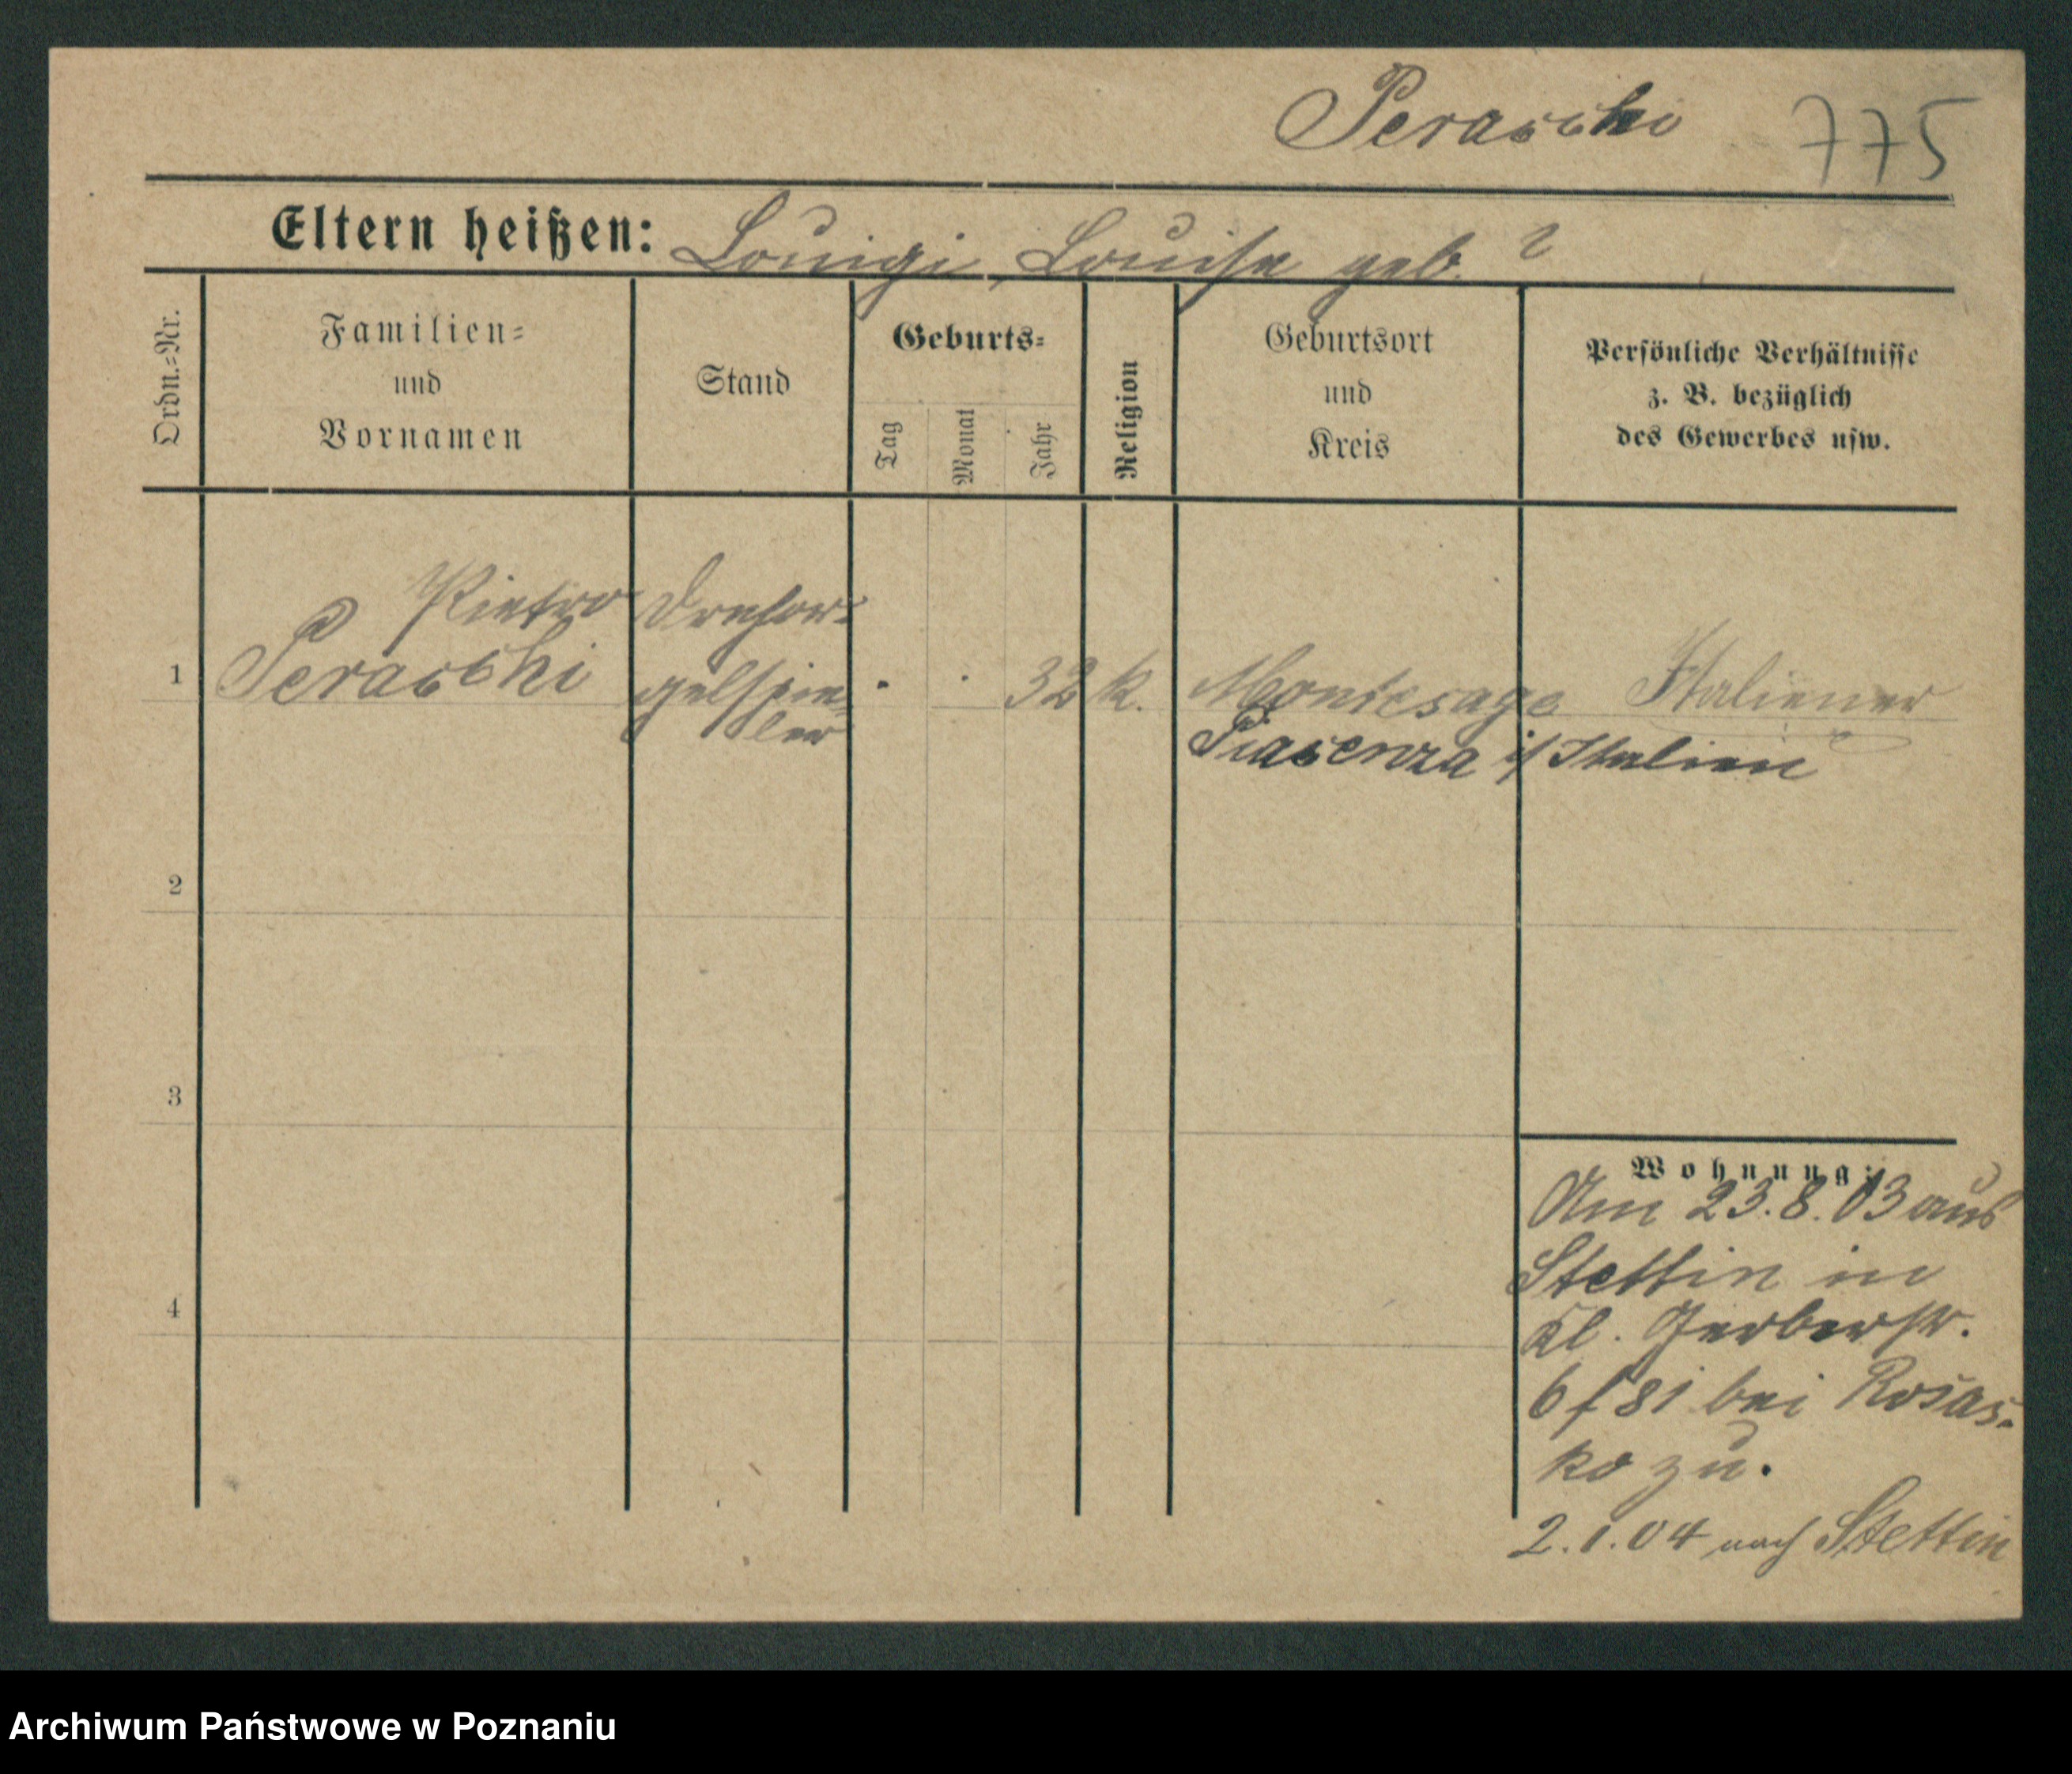 Peraschi 775
Eltern heißen: Louigi, Louise geb. ?
Ordn.=Nr.
Familien=
und
Vornamen
Stand
Geburts=
Tag
Monat
Jahr
Religion
Geburtsort
und
Kreis
Persönliche Verhältnisse
z. B. bezüglich
des Gewerbes usw.
1
Pietro
Peraschi
Drehor=
gelspie=
ler
· · 32
k.
Montesago
Piacenza i/ Italien
Italiener
2
3
4
Wohnung:
Am 23.8.03 aus
Stettin in
Kl. Gerberstr.
6 f 81 bei Rosas=
ko zu.
2.1.04 nach Stettin
Archiwum Państwowe w Poznaniu